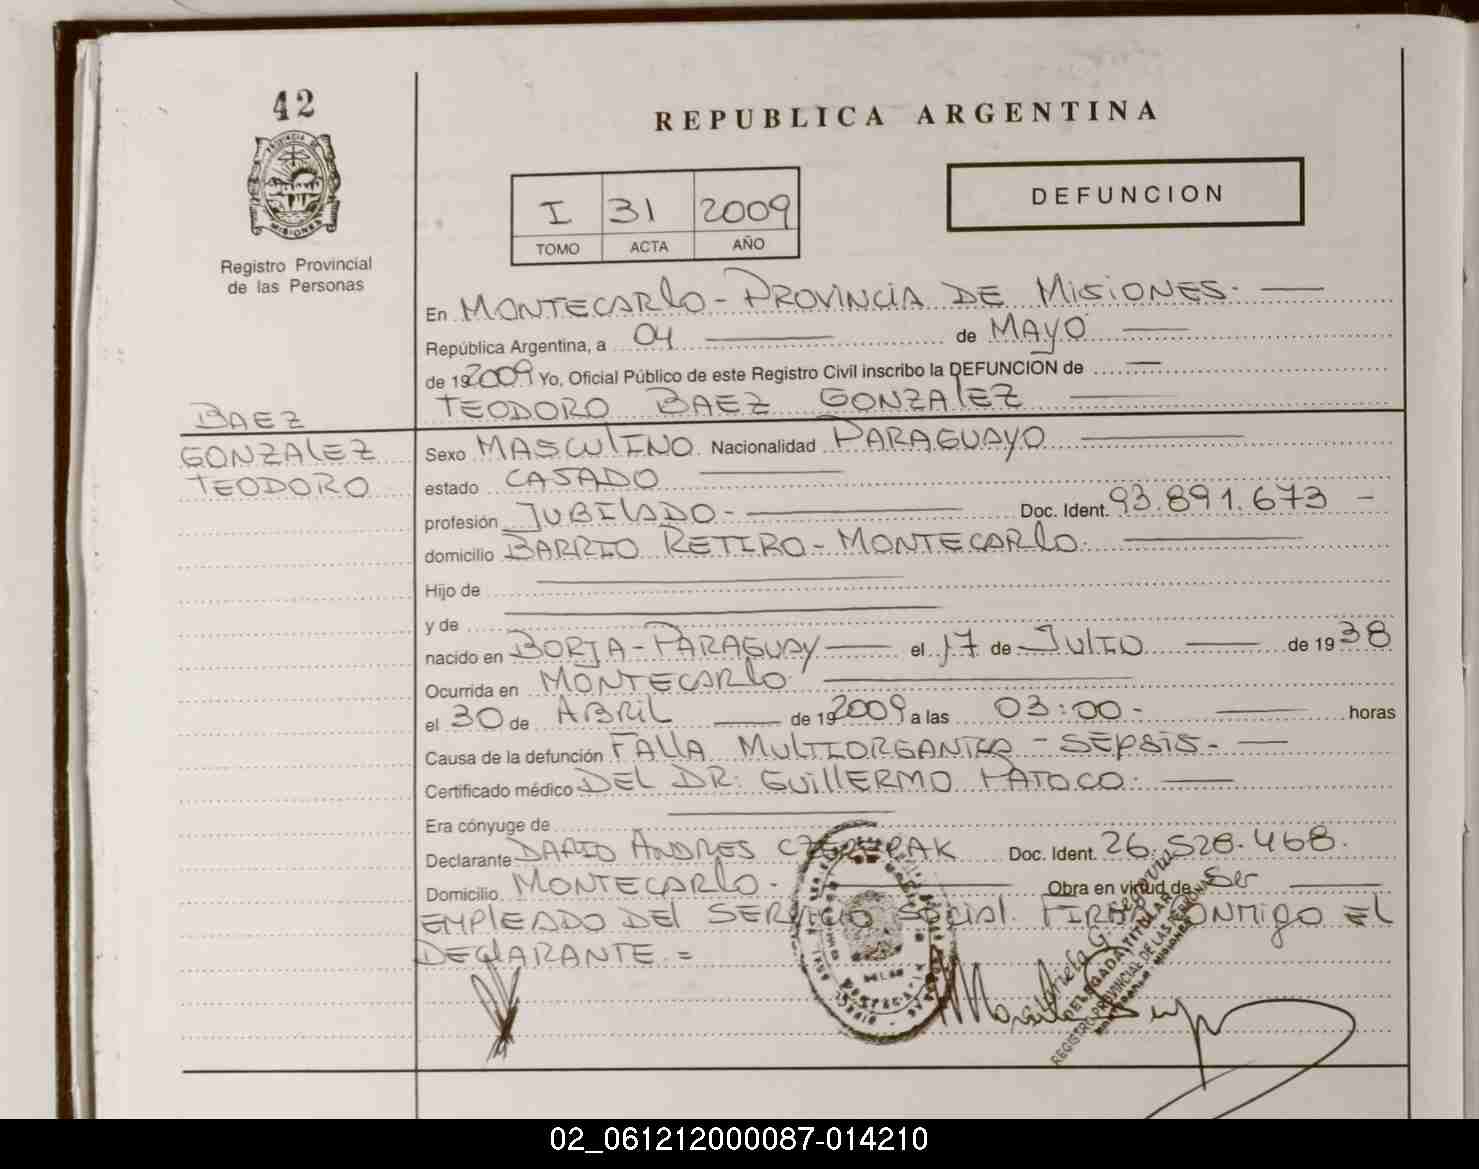 42
PROVINCIA DE
MISIONES
Registro Provincial
de las Personas
REPUBLICA ARGENTINA
I 31 2009
TOMO ACTA AÑO
DEFUNCION
En MONTECARLO - PROVINCIA DE MISIONES.
República Argentina, a 04 de MAYO
de 192009 Yo, Oficial Público de este Registro Civil inscribo la DEFUNCIÓN de
TEODORO BAEZ GONZALEZ
BAEZ
GONZALEZ
TEODORO
Sexo MASCULINO Nacionalidad PARAGUAYO
estado CASADO
profesión JUBILADO - Doc. Ident. 93.891.673 -
domicilio BARRIO RETIRO - MONTECARLO.
Hijo de
y de
nacido en BORJA - PARAGUAY el 17 de JULIO de 1938
Ocurrida en MONTECARLO
el 30 de ABRIL de 192009 a las 03:00 - horas
Causa de la defunción FALLA MULTIORGANICA - SEPSIS -
Certificado médico DEL DR. GUILLERMO
Era cónyuge de
Declarante DARIO ANDRES Doc. Ident. 26.528.468.
Domicilio MONTECARLO - Obra en virtud de Ser
EMPLEADO DEL SERVICIO SOCIAL. FIRMA CONMIGO EL
DECLARANTE =
DELEGADA TITULAR
REGISTRO PROVINCIAL DE LAS PERSONAS
02_061212000087-014210